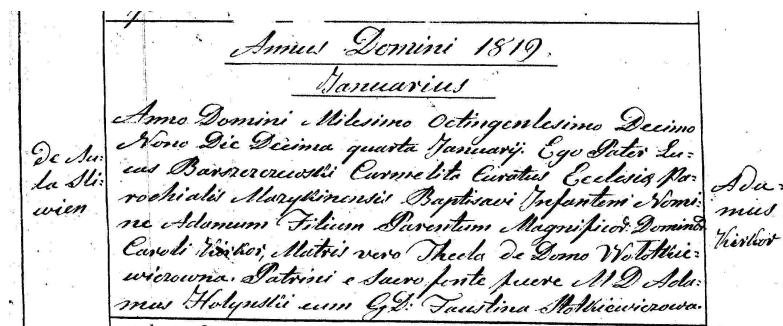 Annus Domini 1819.
Januarius
Anno Domini Milesimo Octingentesimo Decimo
Nono Die Decima quarta Januarij. Ego Pater Lu-
cas Barszczewskii Carmelita Curatus Ecclesiæ Pa-
rochialis Mazykinensis Baptisavi Infantem Nomi-
ne Adamum Filium Parentum Magnificor: Dominor
Caroli Kirkor, Matris vero Thecla de Domo Wolotkie-
wiczowna. Patrini e Sacro fonte fuere M D Ada-
mus Hołynskii cum G D: Faustina Mołkiewiczowa.
de Au-
la Sli-
wien
Ada-
mus
Kirkor